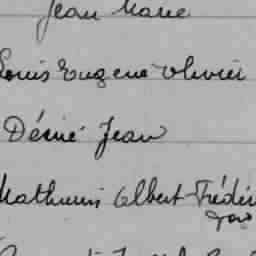 Jean Marie
Louis Eugène Olivier
Désiré Jean
Mathurin Albert Frédéri